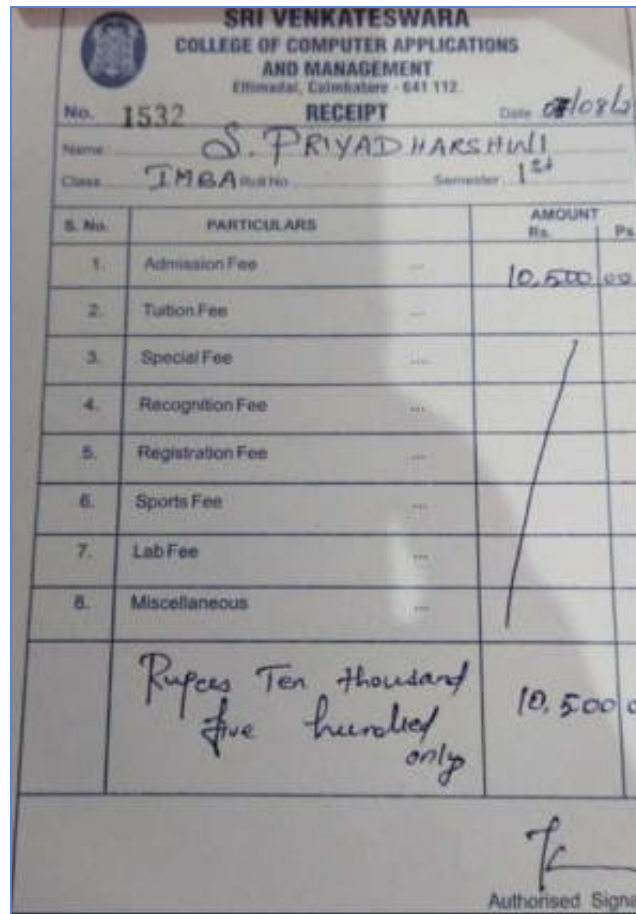 SRI VENKATESWARA
COLLEGE OF COMPUTER APPLICATIONS
AND MANAGEMENT
Ettimadai, Coimbatore - 641 112.
No. 1532 RECEIPT Date 07/08/2
Name S. PRIYADHARSHINI
Class I MBA Roll No. Semester 1st
S. No. PARTICULARS AMOUNT
Rs. Ps
1. Admission Fee ... 10,500 00
2. Tuition Fee ...
3. Special Fee ...
4. Recognition Fee ...
5. Registration Fee ...
6. Sports Fee ...
7. Lab Fee ...
8. Miscellaneous ...
Rupees Ten thousand
five hundred
only
10,500
Authorised Signa